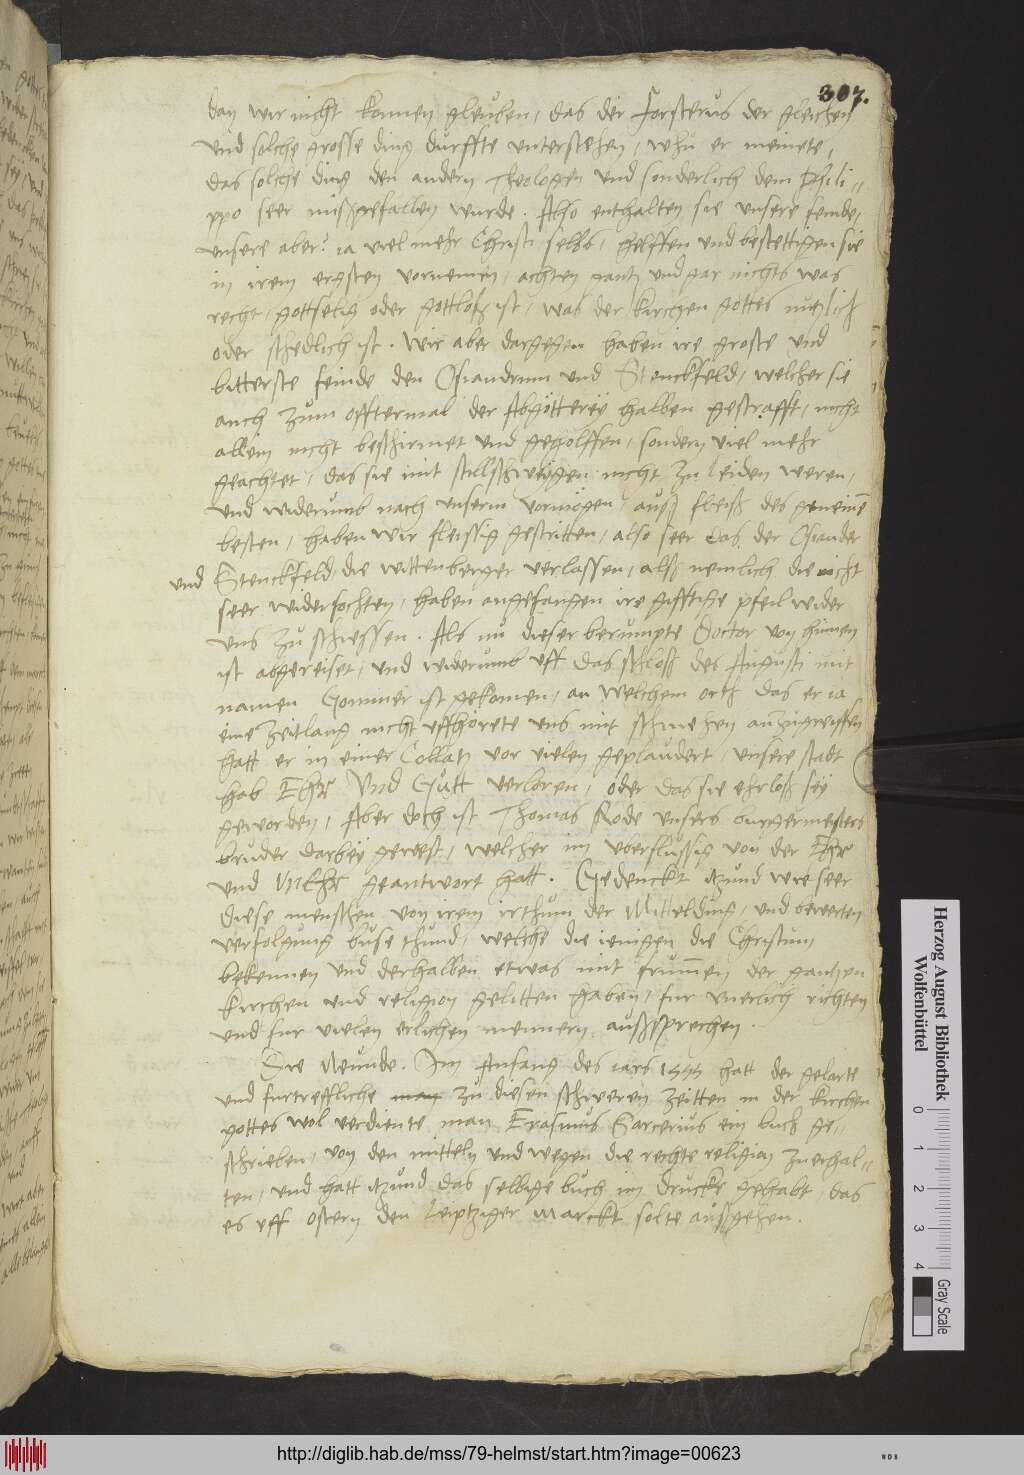 307.
dan wir nicht konnen gleuben, das der Forsterus der gleichen
und solche grosse ding durffte unterstehen, whu er meinete,
das solche ding den andern Theologen und sonderlich dem Phili-
ppo seer mißgefallen wurde. Also enthalten sie unsere feinde,
unsere aber? ia viel mehr Christi selbs, helffen und bestettigen sie
in irem ergsten vornemen, achten gantz und gar nichts was
recht, gottselig oder gottloß ist, was der kirchen gottes nutzlich
oder schedlich ist. Wir aber dargegen haben ire groste und
bitterste feinde den Osiandrum und Stenckfeld, welcher sie
auch zum offtermal der Abgötterey halben gestrafft, nicht
allein nicht beschirmet und geholffen, sondern viel mehr
geachtet, das sie mit stillschweigen nicht zu leiden weren,
und widerumb nach unserm vormögen, auß fleiß des gemeinē
besten, haben wir fleissig gestritten, also seer das der Osiander
und Stenckfeld, die wittenberger verlassen, alß nemlich die nicht
seer widerfochten, haben angefangen ire gifftige pfeil wider
uns zu schiessen. Als nu dieser berumpte Doctor von hinnen
ist abgereiset, und widerumb uff das schloß des Augusti mit
namen Gommer ist gekomen, an welchem orth das er ia
eine zeitlang nicht uffhörete uns mit schmehen anzugreiffen
hatt er in einer Collatz vor vielen geplaudert, unsere stadt
hab Ehr Und Gutt verloren, oder das sie ehrloß seӱ
geworden, Aber doch ist Thomas Rode unsers burgermeisters
bruder darbeӱ gewest, welcher im uberflussig von der Ehr
und UnEhr geantwort hatt. Gedenckt itzund wie seer
diese menschen von irem irthum der Mitteldung, und
verfolgung buse thund, welche die ienigen die Christum
bekennen und derhalben etwas mit frummen der gantzen
Kirchen und religion gelitten haben, fur unerlich richten
und fur vielen erlichen mennern außsprechen.
Die Neunde. Im Anfang des iars 1555 hatt der gelarte
und furtreffliche man zu diesen schweren zeitten in der kirchen
gottes wol verdiente man Erasmus Sarcerius ein buch ge-
schrieben, von den mitteln und wegen die rechte religion zu erhal-
ten, und hatt itzund das selbige buch im drucke gehabt, das
es uff ostern den Leiptziger marckt solte außgehen.
Herzog August Bibliothek
Wolfenbüttel
0 1 2 3 4
Gray Scale
http://diglib.hab.de/mss/79-helmst/start.htm?image=00623